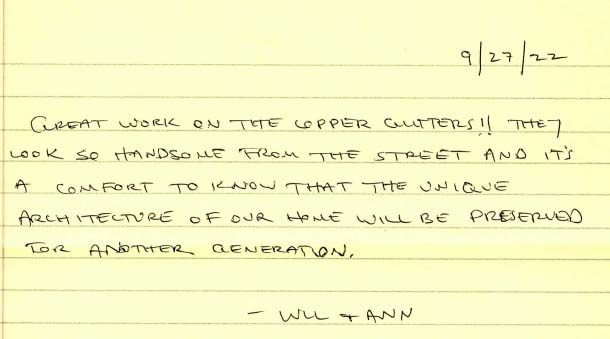 9/27/22
GREAT WORK ON THE COPPER GUTTERS!! THEY
LOOK SO HANDSOME FROM THE STREET AND IT'S
A COMFORT TO KNOW THAT THE UNIQUE
ARCHITECTURE OF OUR HOME WILL BE PRESERVED
FOR ANOTHER GENERATION.
- WILL + ANN